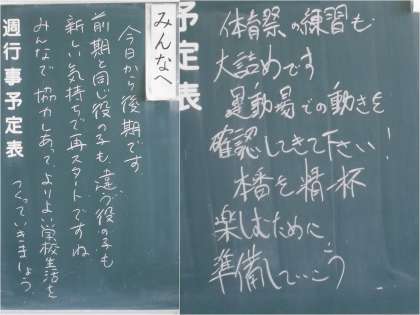 みんなへ
今日から後期です
前期と同じ役の子も違う役の子も
新しい気持ちで再スタートですね
みんなで協力しあってよりよい学校生活を
つくっていきましょう
週行事予定表
予定表
体育祭の練習も
大詰めです
運動場での動きを
確認してきて下さい!
本番を精一杯
楽しむために
準備していこう